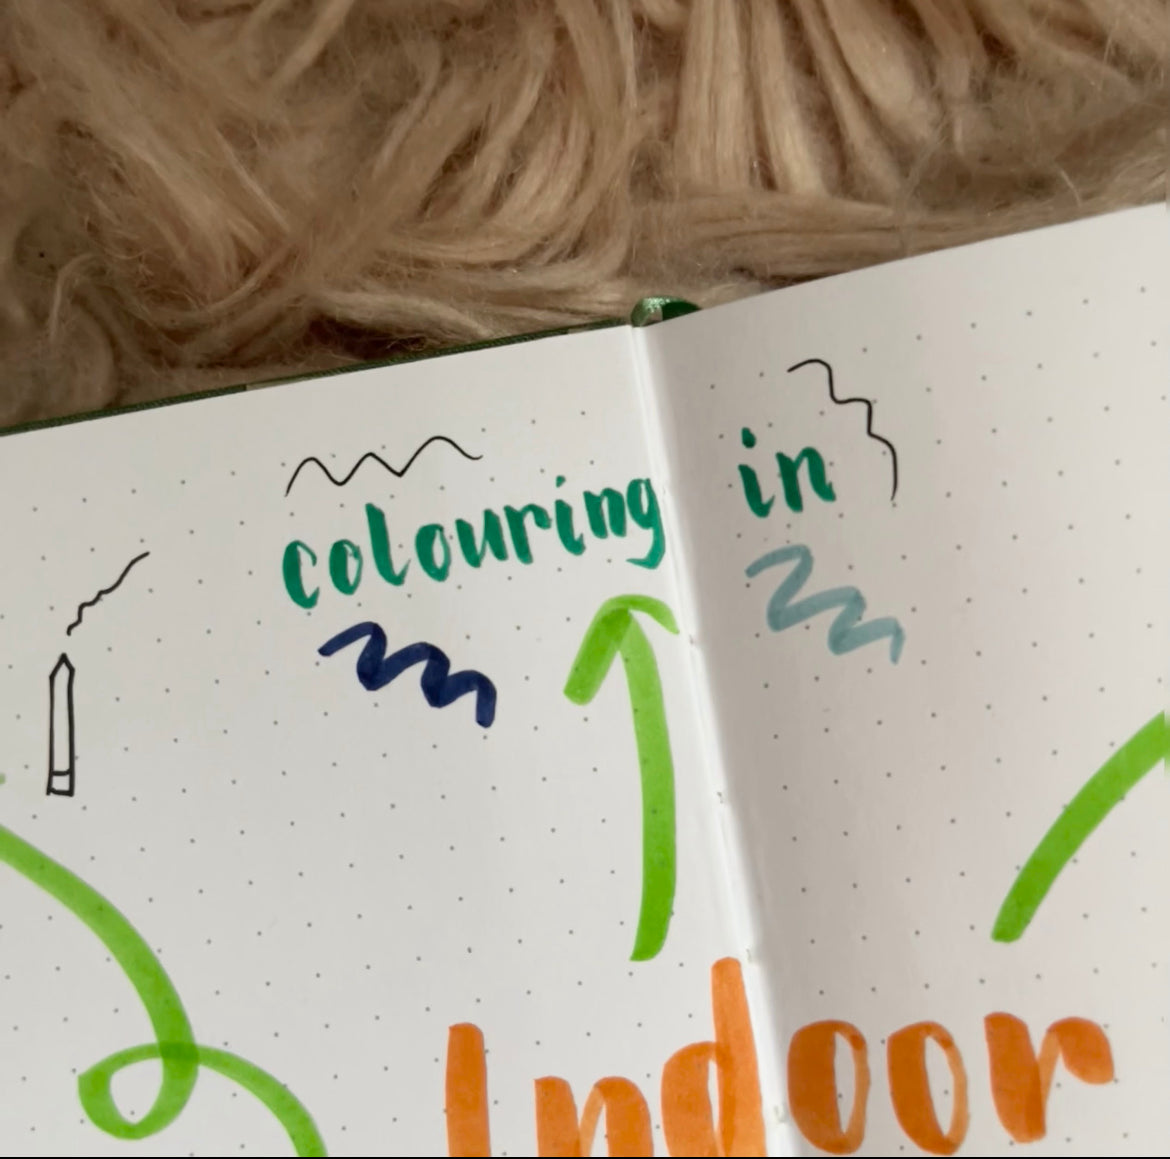 colouring in
Indoor